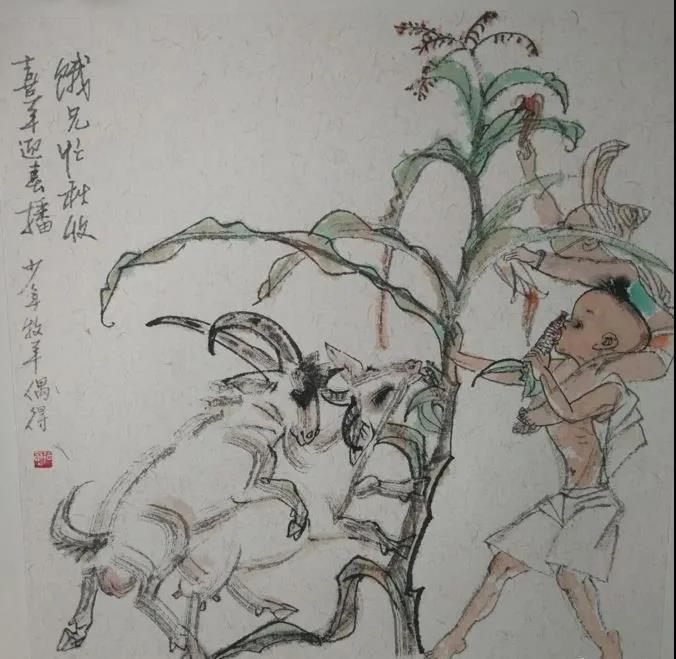 饿兄忙秋收
喜羊迎春播
少年牧羊偶得